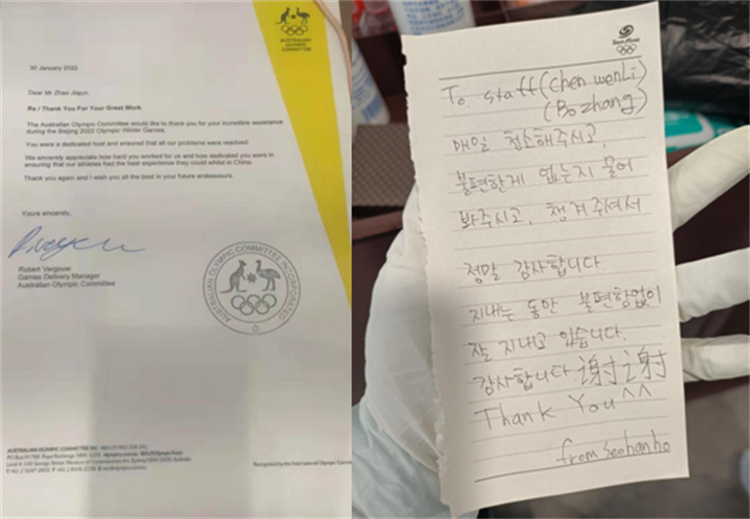 AUSTRALIAN
OLYMPIC
COMMITTEE
30 January 2022
Dear Mr Zhao Jiajun,
Re / Thank You For Your Great Work
The Australian Olympic Committee would like to thank you for your incredible assistance
during the Beijing 2022 Olympic Winter Games.
You were a dedicated host and ensured that all our problems were resolved.
We sincerely appreciate how hard you worked for us and how dedicated you were in
ensuring that our athletes had the best experience they could whilst in China.
Thank you again and I wish you all the best in your future endeavours.
Yours sincerely,
Robert Vergouw
Games Delivery Manager
Australian Olympic Committee
AUSTRALIAN OLYMPIC COMMITTEE INCORPORATED
AUSTRALIAN OLYMPIC COMMITTEE INC.
Museum of Contemporary Art, Sydney NSW 2000 Australia
Recognised by the International Olympic
Team Korea
To. staff (Chen wenLi)
(Bo zhang)
매일 청소해주시고,
불편한게 없는지 물어
봐주시고, 챙겨주셔서
정말 감사합니다
지내는 동안 불편함없이
잘 지내고 있습니다.
감사합니다. 谢谢
Thank You ^^
from Seohanho